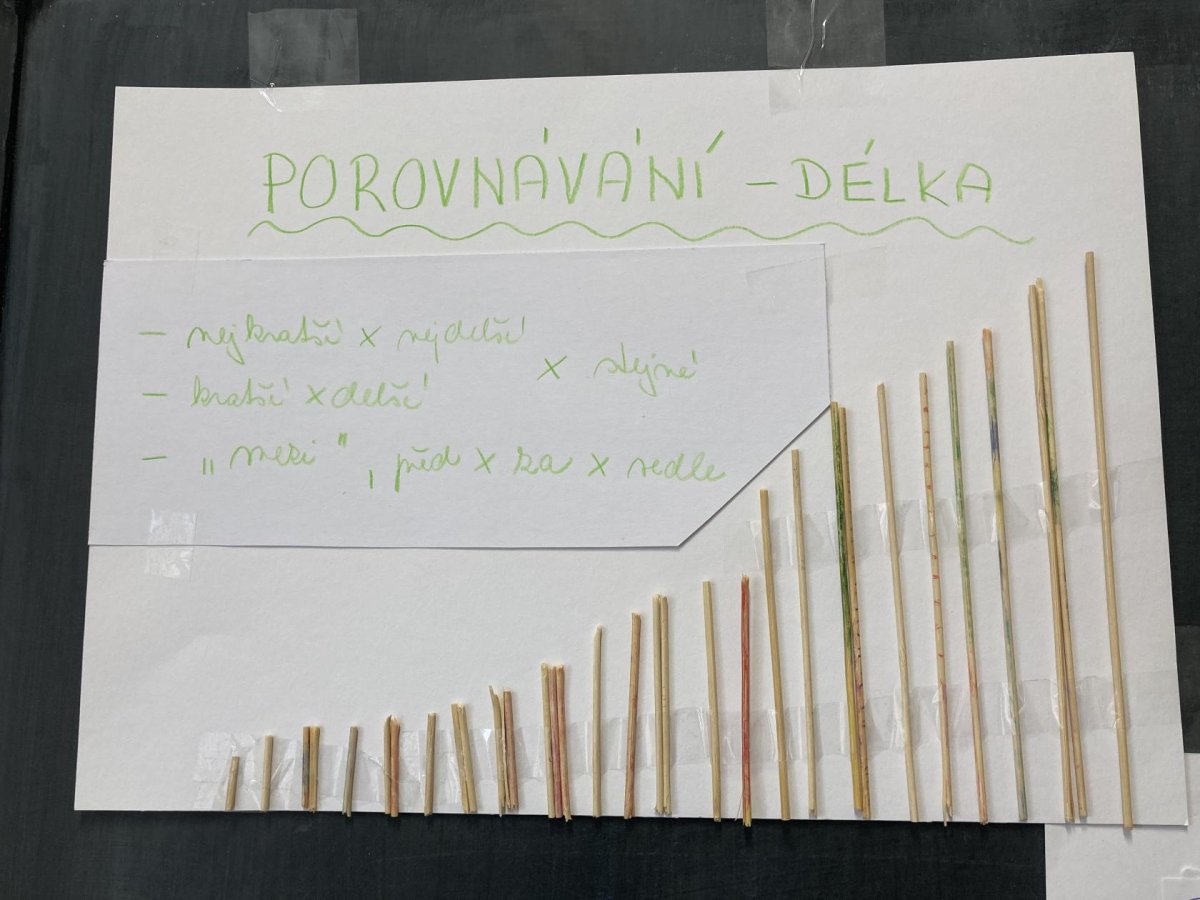 POROVNÁVÁNÍ – DÉLKA
– nejkratší x nejdelší
x stejné
– kratší x delší
– „mezi", před x za x vedle